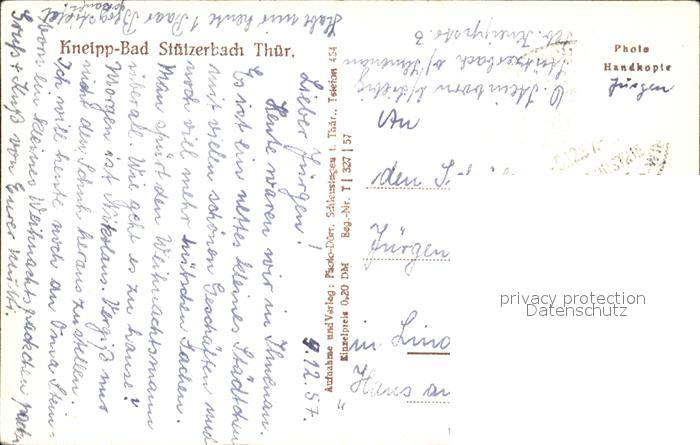 Kneipp-Bad Stützerbach Thür.
Photo
Handkopie
Jürgen
9.12.57.
Lieber Jürgen!
Heute waren wir in Ilmenau.
Es ist ein nettes kleines Städtchen
mit vielen schönen Geschäften und
noch viel mehr hübschen Sachen.
Man spürt den Weihnachtsmann
überall. Wie geht es zu hause?
Morgen ist Nikolaus. Vergiß nur
nicht den Schuh heraus zustellen.
Ich will heute noch an Oma Stein-
born ein kleines Weihnachtspäckchen packen
Gruß + Kuß von Eurer Mutti.
Habe mir heute 1 Paar
Aufnahme und Verlag: Photo-Dörr, Schleusingen i. Thür., Telefon 454
Einzelpreis 0,20 DM Beg.-Nr. T | 327 | 57
Stützerbach b/Ilmenau
An
den
Jürgen
in
"Hans
privacy protection
Datenschutz